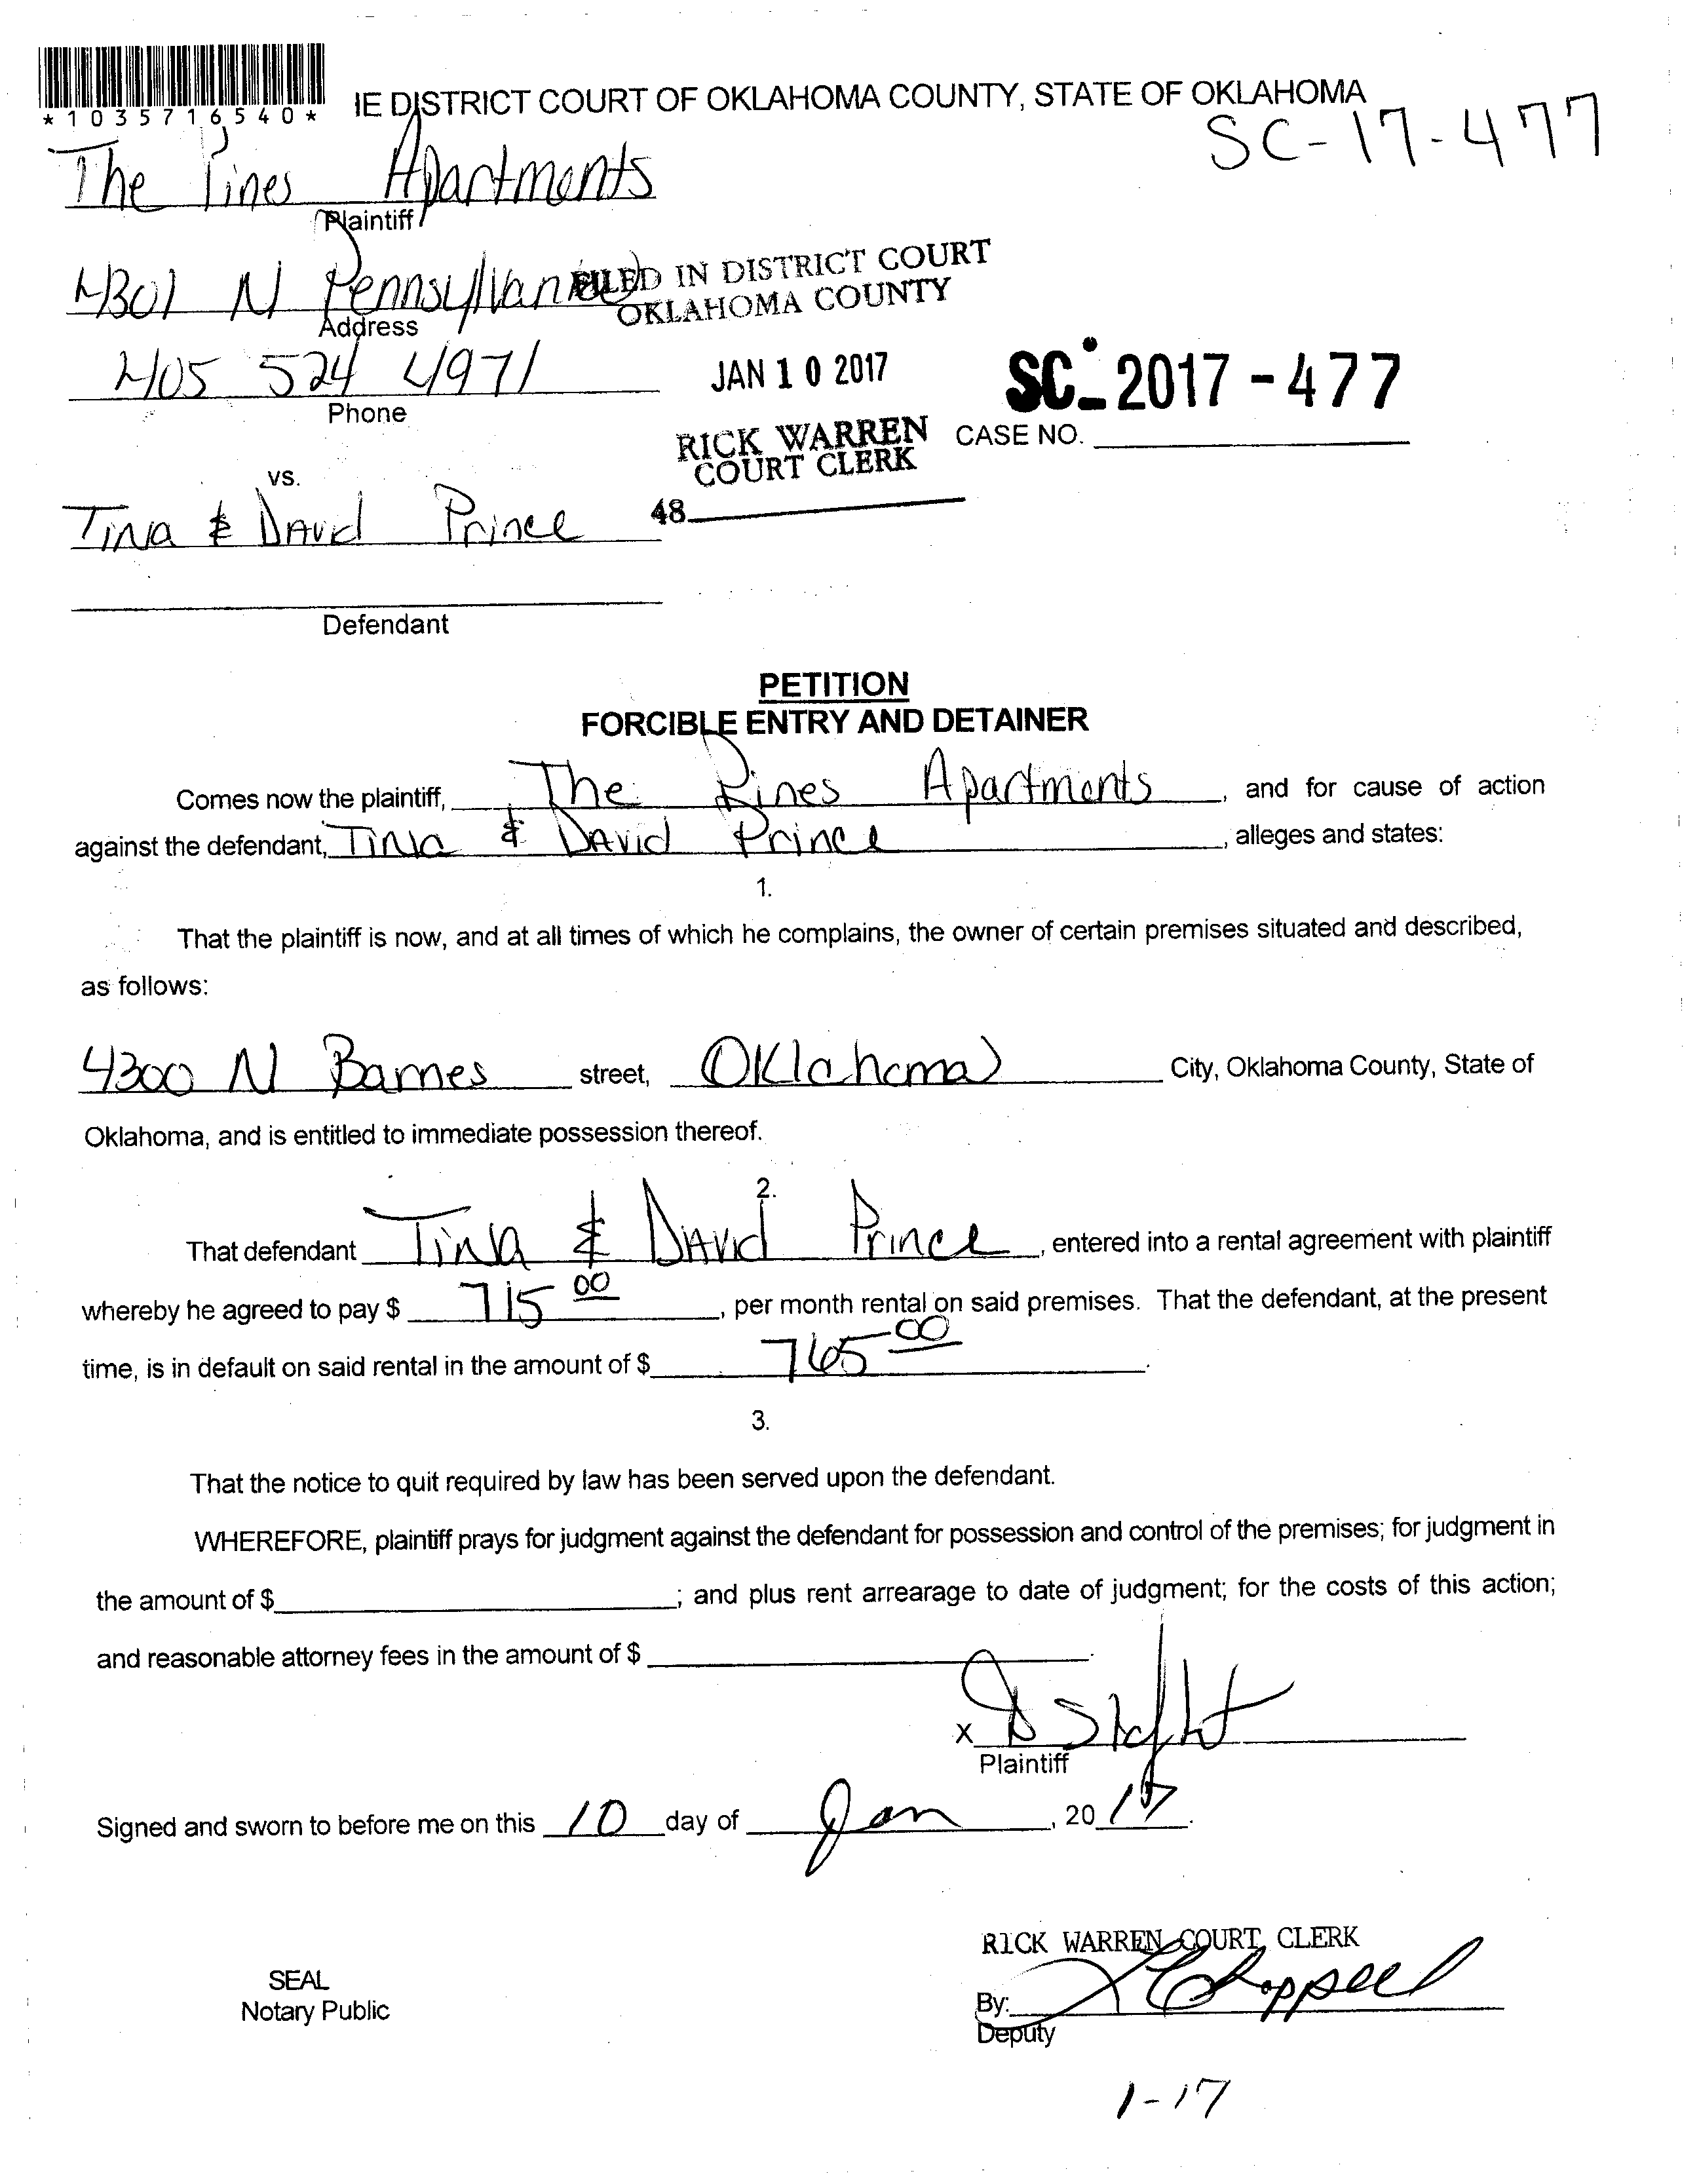 *1035716540*
IE DISTRICT COURT OF OKLAHOMA COUNTY, STATE OF OKLAHOMA
SC-17-477
The Pines Apartments
Plaintiff
4301 N Pennsylvania
FILED IN DISTRICT COURT
OKLAHOMA COUNTY
Address
405 524 4971
Phone
JAN 10 2017
SC-2017-477
RICK WARREN
COURT CLERK
CASE NO.
vs.
48
Tina & David Prince
Defendant
PETITION
FORCIBLE ENTRY AND DETAINER
Comes now the plaintiff, The Pines Apartments, and for cause of action
against the defendant, Tina & David Prince, alleges and states:
1.
That the plaintiff is now, and at all times of which he complains, the owner of certain premises situated and described,
as follows:
4300 N Barnes street, Oklahoma City, Oklahoma County, State of
Oklahoma, and is entitled to immediate possession thereof.
2.
That defendant Tina & David Prince, entered into a rental agreement with plaintiff
whereby he agreed to pay $ 715 00, per month rental on said premises. That the defendant, at the present
time, is in default on said rental in the amount of $ 765 00.
3.
That the notice to quit required by law has been served upon the defendant.
WHEREFORE, plaintiff prays for judgment against the defendant for possession and control of the premises; for judgment in
the amount of $ ; and plus rent arrearage to date of judgment; for the costs of this action;
and reasonable attorney fees in the amount of $ .
x
Plaintiff
Signed and sworn to before me on this 10 day of Jan, 20 17.
RICK WARREN COURT CLERK
SEAL
Notary Public
By:
Deputy
1-17